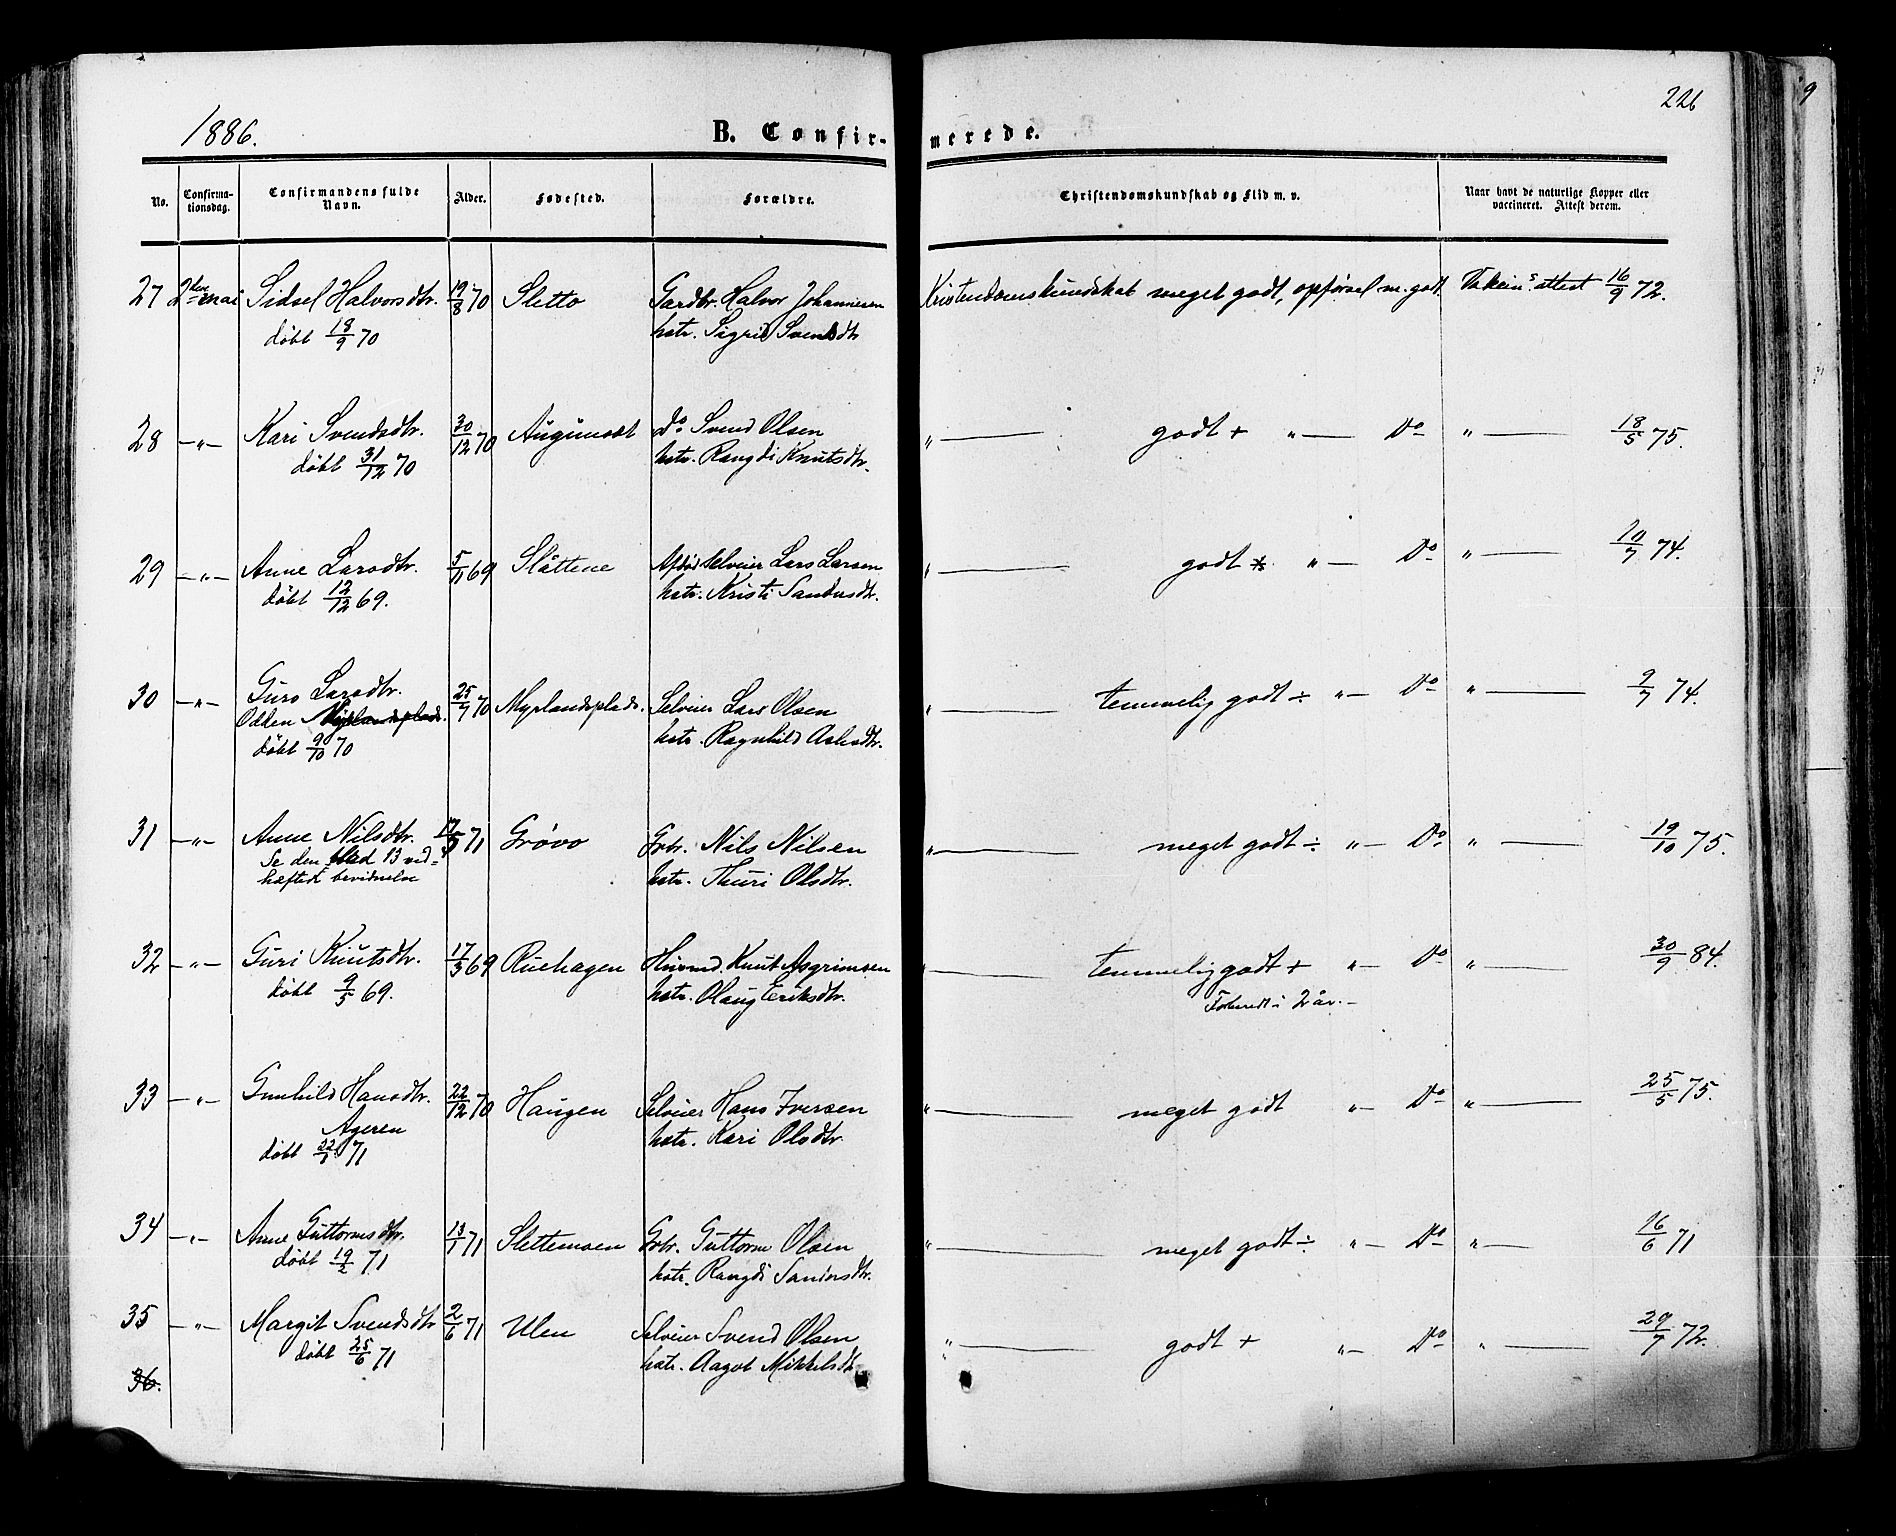 1886.
B. Confir-
merede.
226
9
No.
Confirma-
tionsdag.
Confirmandens fulde
Navn.
Alder.
Fødested.
Forældre.
Christendomskundskab og Flid m. v.
Naar havt de naturlige Kopper eller
vaccineret. Attest derom.
27 2den mai Sidsel Halvorsdtr. 19/8 70 Sletto Gardbr. Halvor Johannesen Kristendomskundskab meget godt, opførsel m. godt. attest 16/9 72.
døbt 18/9 70 hstr. Sigrid Svensdtr
28 -"- Kari Svendsdtr. 30/12 70 do Svend Olsen " godt + " Do " 18/5 75.
døbt 31/12 70 hstr. Rangdi Knutsdtr.
29 -"- Anne Larsdtr. 5/11 69 Slåttene Afdød Selveier Lars Larsen " godt " Do " 10/7 74.
døbt 12/12 69. hstr. Kristi Sandersdtr.
30 -"- Guro Larsdtr. 25/7 70 Myrlandsplads. Selveier Lars Olsen " temmelig godt ÷ " Do " 9/7 74.
Odden Myrlandsplads.
døbt 9/10 70 hstr. Ragnhild Aslesdtr.
31 -"- Anne Nilsdtr. 17/5 71 Grøvo Gbr. Nils Nilsen " meget godt ÷ " Do " 19/10 75.
Se den blad 13 ved-
hæftede bevidnelse hstr. Thuri Olsdtr.
32 -"- Guri Knutsdtr. 17/3 69 Ruehagen Husmd. Knut Asgrimsen " temmelig godt + " Do " 30/9 84.
døbt 9/5 69. hstr. Olaug Eriksdtr. Forberedt i 2 år. -
33 -"- Gunhild Hansdtr. 22/12 70 Haugen Selveier Hans Iversen " meget godt " Do " 25/5 75.
Ageren hstr. Kari Olsdtr.
døbt 22/1 71
34 -"- Anne Guttormsdtr. 13/1 71 Slettemoen Gbr. Guttorm Olsen " meget godt ÷ " Do " 16/6 71
døbt 19/2 71 hstr. Rangdi Sandersdtr.
35 -"- Margit Svendsdtr 2/6 71 Ulen Selveier Svend Olsen " godt + " Do " 29/7 72.
døbt 25/6 71 hstr. Aagot Mikkelsdtr
36.